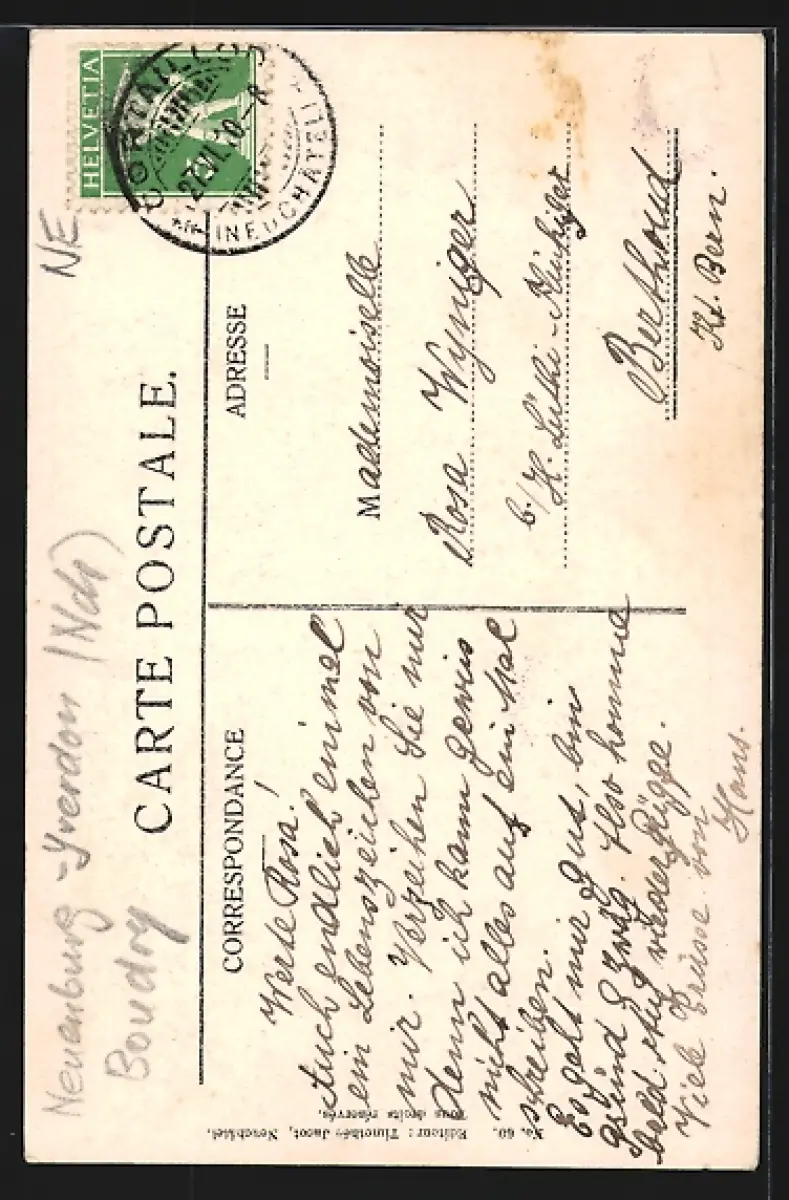 HELVETIA
CORTAILLOD
27.VI.10-8
(NEUCHÂTEL)
NE
Neuenburg - Yverdon (Nch)
Boudry
CARTE POSTALE.
CORRESPONDANCE
Werte Rosa!
Auch endlich einmal
ein Lebenszeichen von
mir. Verzeihen Sie mir
denn ich kann gewiss
nicht alles auf ein Mal
schreiben.
Es geht mir gut, bin
gsund & zwäg. Also komme
bald wieder
Viele Grüsse von
Hans.
ADRESSE
Mademoiselle
Rosa Wyniger
b/H. Lüthi-
Berthoud
Kt. Bern.
No. 60. Editeur: Timothée Jacot, Neuchâtel.
Tous droits réservés.